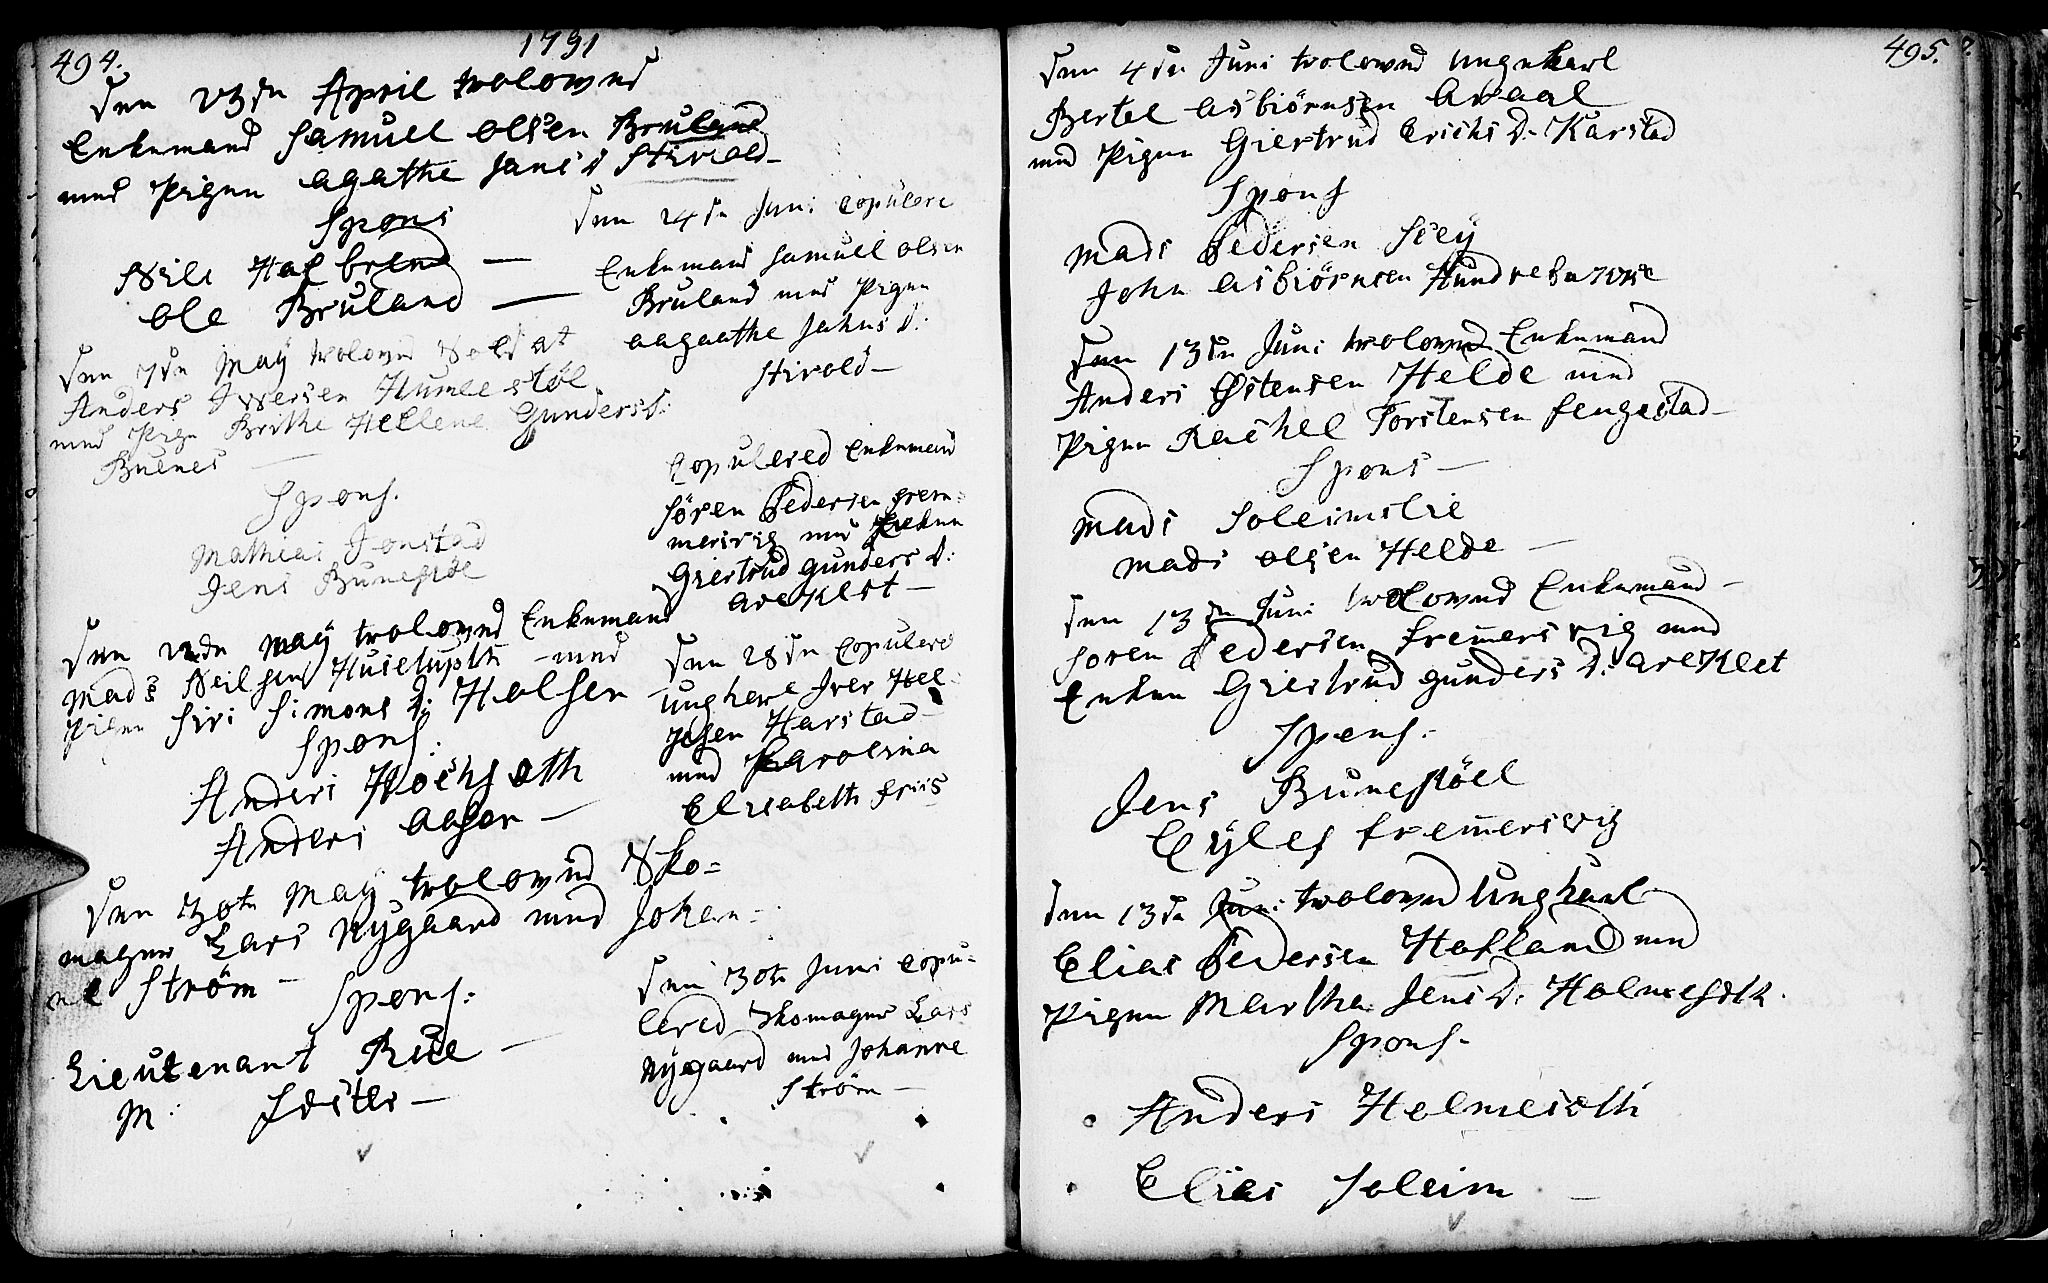 494.
1791
Den 23de April trolowed
Enkemand Samuel Olsen Bruland
med Pigen Agathe Jans d Stirold -
Spons
Neils Hafbrend -
Ole Bruland -
Den 7de May trolowed Soldat
Anders Iversen Humlestøl
med Pige Berthe Hellene Gundersd:
Buenes -
Spons.
Mathias Jonstad
Jens Bunestøl
Den 22de May trolowed Enkemand
Mads Neilsen Husetupth - med
Pigen Siri Simons d: Holsen
Spons:
Anders Höchsoth
Anders Aasen -
Den 30te May trolowed Sko=
mager Lars Nygaard med Johan=
ne Ström -
Spons:
Lieutenant Rue -
M: Foster -
Den 24de Juni Copulere
Enkemand Samuel Olsen
Bruland med Pigen
Aagaathe Jahns d:
Stirold -
Copulered Enkemand
Sören Pedersen Frem=
mersvig med Enken
Giertrud Gunders d:
Areklet -
Den 28de Copulered
Ungkerl Iver Hel=
gesen Harstad -
med Karolina
Elisabeth Friis
Den 30te Juni Copu=
lered Skomager Lars
Nygaard med Johanne
Ström -
495.
Den 4de Juni trolowed Ungekarl
Bertel Asbiörnsen Araal
med Pigen Giertrud Erichs D: Karstad
Spons
Mads Pedersen Seey
John Asbiörnsen
Den 13de Juni trolowed Enkemand
Anders Østensen Helde med
Pigen Rachel Torstensen Fengestad -
Spons -
Mads Soleimslie
Mads Olsen Helde -
Den 13de Juni trolowed Enkemand -
Soren Pedersen Fremersvig med
Enken Giertrud Gunders D: Areklet
Spens.
Jens Bunestöel
Eylef Fremersvig
Den 13de Juni trolowed Ungkarl
Elias Pedersen Hafland med
Pigen Martha Jens D: Holmesoth.
Spons.
Anders Holmesoth
Elias Soleim -